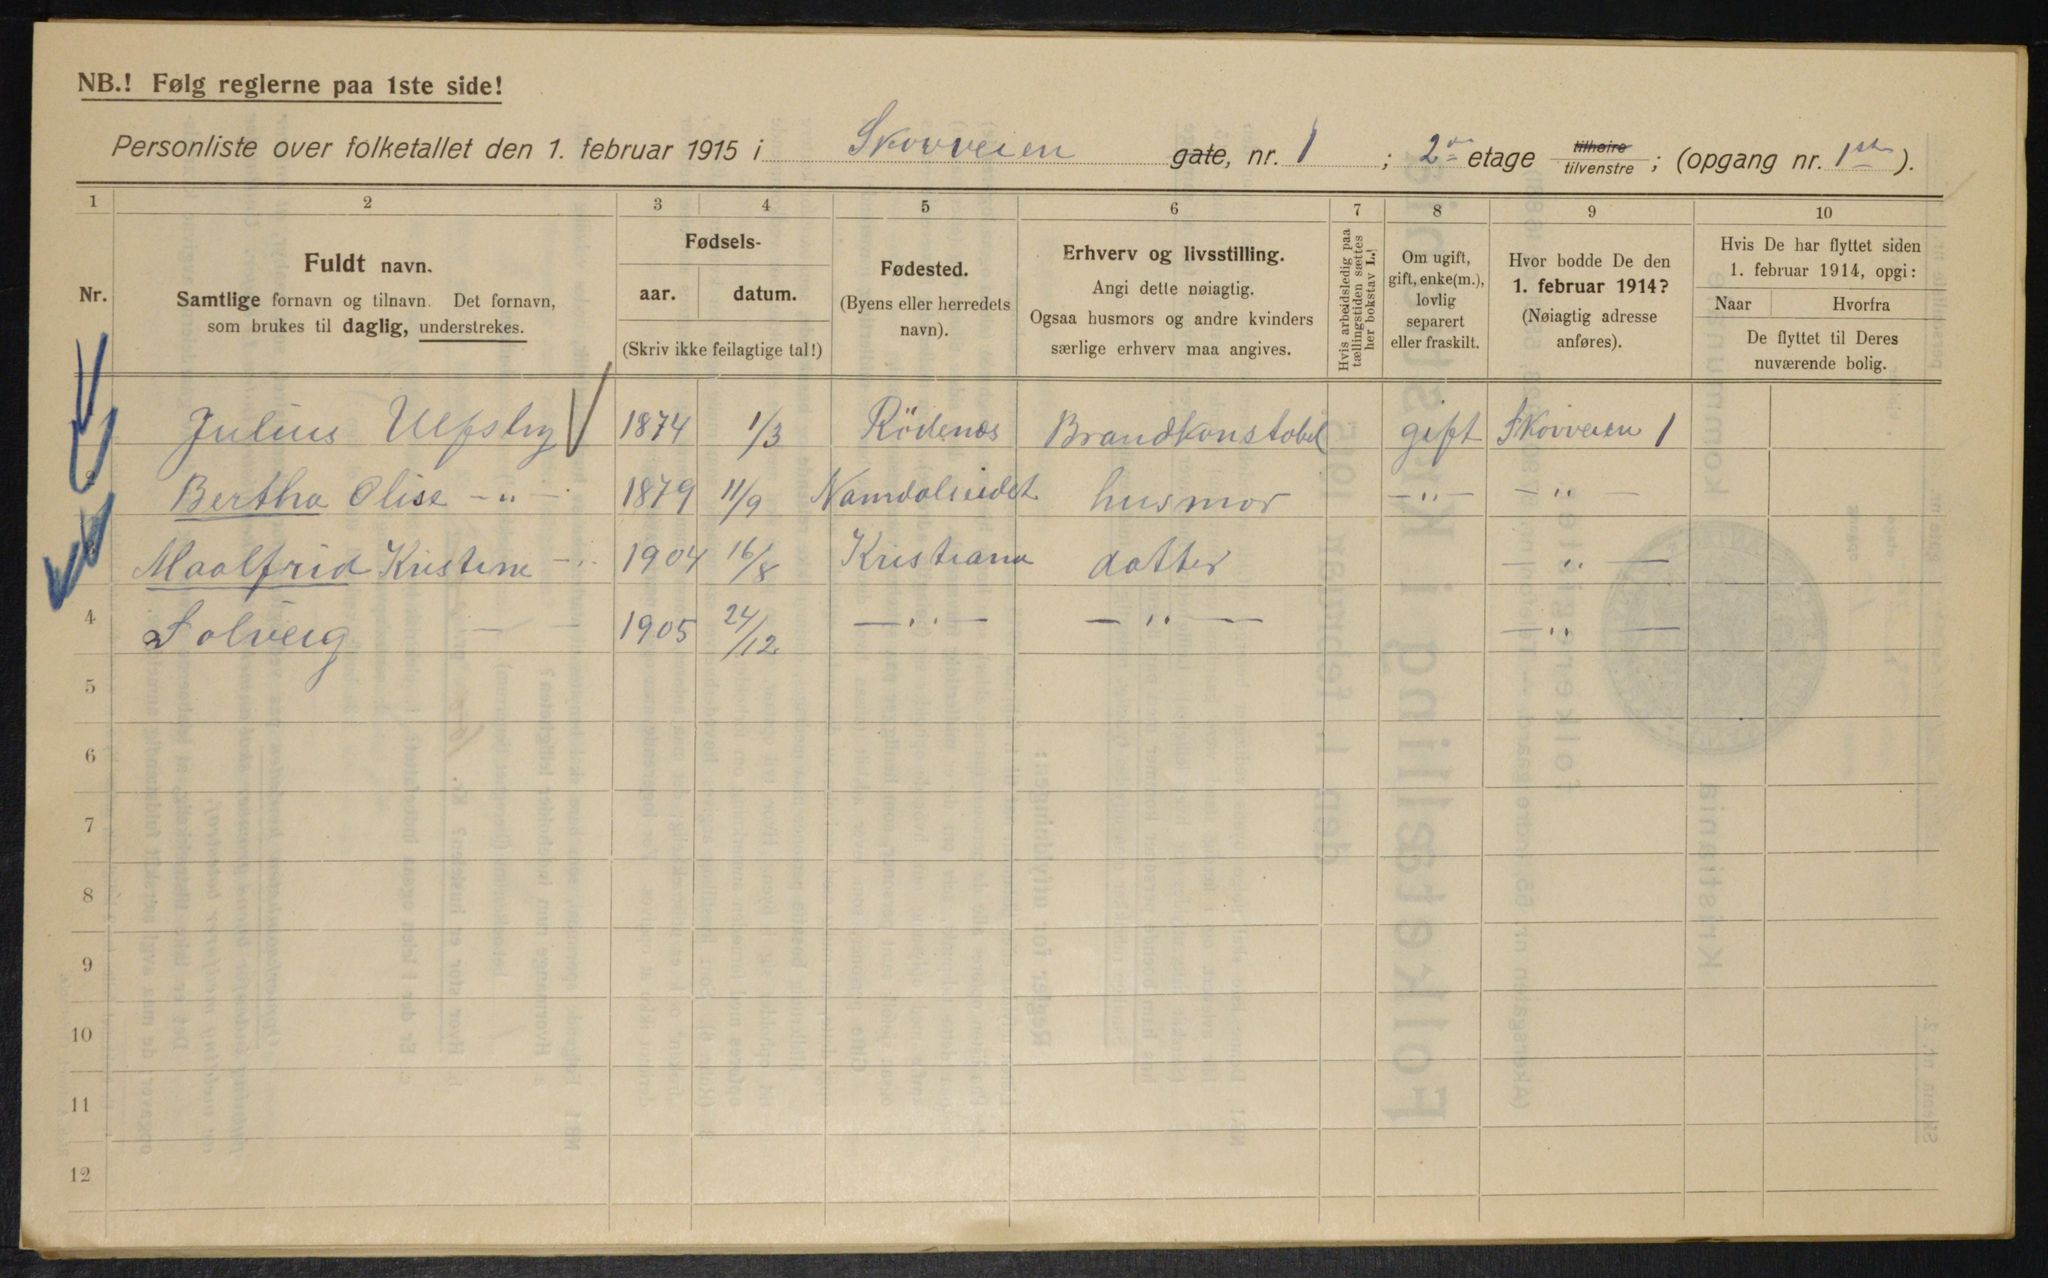 NB.! Følg reglerne paa 1ste side!
Personliste over folketallet den 1. februar 1915 i Skovveien gate, nr. 1 ; 2den etage tilhøire tilvenstre ; (opgang nr. 1ste ).
1 2 3 4 5 6 7 8 9 10
Nr.
Fuldt navn.
Samtlige fornavn og tilnavn. Det fornavn,
som brukes til daglig, understrekes.
Fødsels-
aar. datum.
(Skriv ikke feilagtige tal!)
Fødested.
(Byens eller herredets
navn).
Erhverv og livsstilling.
Angi dette nøiagtig.
Ogsaa husmors og andre kvinders
særlige erhverv maa angives.
Hvis arbeidsledig paa
tællingstiden sættes
her bokstav L.!
Om ugift,
gift, enke(m.),
lovlig
separert
eller fraskilt.
Hvor bodde De den
1. februar 1914?
(Nøiagtig adresse
anføres).
Hvis De har flyttet siden
1. februar 1914, opgi:
Naar Hvorfra
De flyttet til Deres
nuværende bolig.
Julius Ulfsby 1874 1/3 Rödenæs Brandkonstabel gift Skovveien 1
2 Bertha Olise -"- 1879 11/9 Namdalseidet husmor -"- - " -
3 Maalfrid Kristine -"- 1904 16/8 Kristiana datter - " -
4 Solveig - - 1905 24/12 - " - - " - - " -
5
6
7
8
9
10
11
12